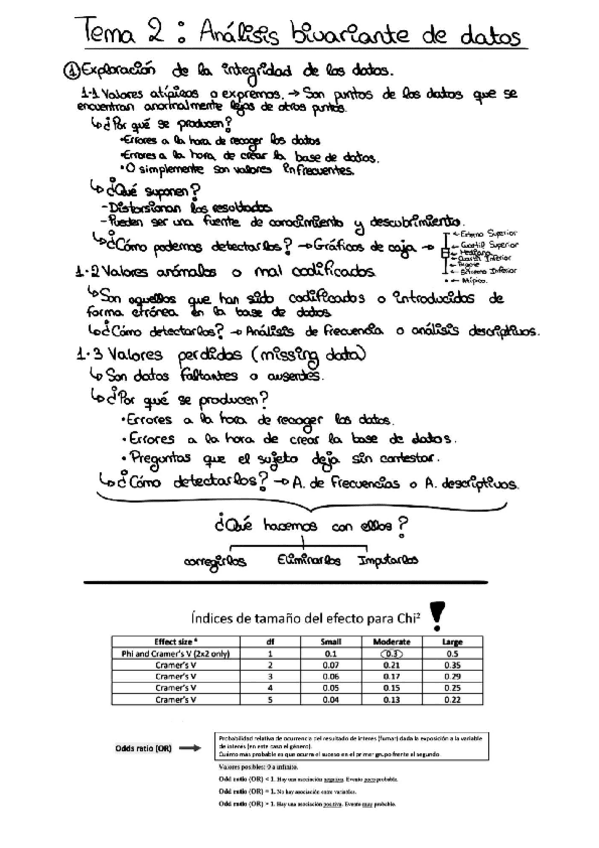 Tema 2: Análisis bivariante de datos
① Exploración de la integridad de los datos.
1.1 Valores atípicos o expremos. → Son puntos de los datos que se
encuentran anormalmente lejos de otros puntos.
↳ ¿Por qué se producen?
• Errores a la hora de recoger los datos
• Errores a la hora de crear la base de datos.
• O simplemente son valores infrecuentes.
↳ ¿Qué suponen?
- Distorsionan los resultados
- Pueden ser una fuente de conocimiento y descubrimiento.
↳ ¿Cómo podemos detectarlos? → Gráficos de caja →
← Extremo Superior
← Cuartil Superior
← Mediana
← Cuartil Inferior
← Bigote
← Extremo Inferior
← Atípico.
1.2 Valores anómalos o mal codificados
↳ Son aquellos que han sido codificados o introducidos de
forma errónea en la base de datos
↳ ¿Cómo detectarlos? → Análisis de frecuencia o análisis descriptivos.
1.3 Valores perdidos (missing data)
↳ Son datos faltantes o ausentes.
↳ ¿Por qué se producen?
• Errores a la hora de recoger los datos.
• Errores a la hora de crear la base de datos.
• Preguntas que el sujeto deja sin contestar.
↳ ¿Cómo detectarlos? → A. de frecuencias o A. descriptivos.
¿Qué hacemos con ellos?
corregirlos Eliminarlos Imputarlos
Índices de tamaño del efecto para Chi² !
Effect size df Small Moderate Large
Phi and Cramer's V (2x2 only) 1 0.1 0.3 0.5
Cramer's V 2 0.07 0.21 0.35
Cramer's V 3 0.06 0.17 0.29
Cramer's V 4 0.05 0.15 0.25
Cramer's V 5 0.04 0.13 0.22
Odds ratio (OR) →
Probabilidad relativa de ocurrencia del resultado de interés (fumar) dada la exposición a la variable
de interés (en este caso el género).
Cuánto más probable es que ocurra el suceso en el primer grupo frente al segundo.
Valores posibles: 0 a infinito.
Odd ratio (OR) < 1. Hay una asociación negativa. Evento poco probable.
Odd ratio (OR) = 1. No hay asociación entre variables.
Odd ratio (OR) > 1. Hay una asociación positiva. Evento muy probable.